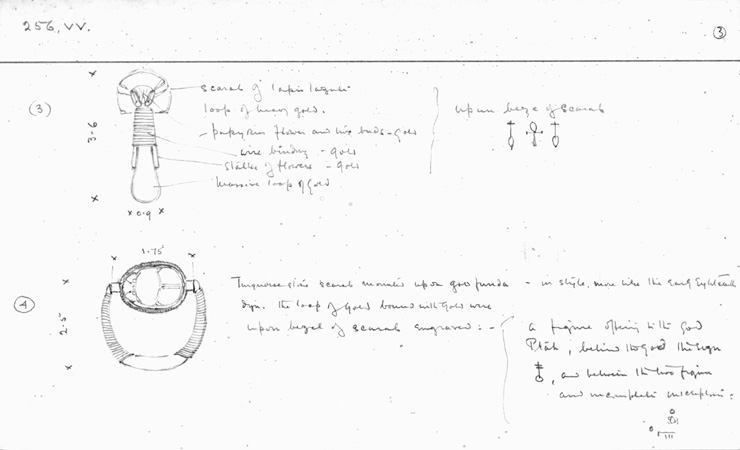 256, VV.
③
③
3.6
scarab of lapis lazuli
loop of heavy gold.
papyrus flower and two buds - gold
wire binding - gold
stalks of flowers - gold
massive loop of gold
0.9
upon bezel of scarab
④
1.75
2.5
Turquoise glass scarab mounted upon gold funda - in style, more like the early Eighteenth
Dyn. the loop of gold bound with gold wire
upon bezel of scarab engraved : -
a figure offering to the God
Ptah, behind the god the sign
, and between the two figures
and incomplete inscription :